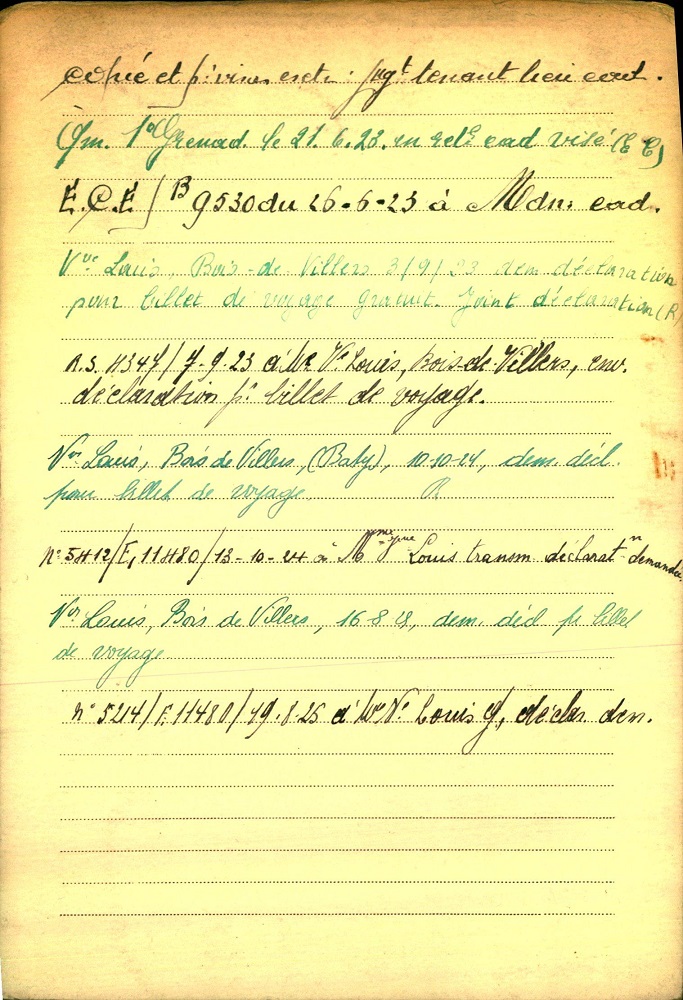 copié et pr visa extr. jugt tenant lieu cad.
Qm. 1er Grenad. le 21. 6. 23. en cad visé (E C)
E.C.E / B 9530 du 26-6-23 à Mdn. cad.
Vve Louis, Bois-de-Villers 3/9/23 dem. déclaration
pour billet de voyage gratuit. Joint déclaration (R)
R.S. 11347/7-9-23 à Me Ve Louis, Bois-de-Villers, env.
déclaration pr billet de voyage.
Vve Louis, Bois de Villers, (Baty), 10-10-24, dem. décl.
pour billet de voyage R
No 5412/F, 11480/13-10-24 à Mme Vve Louis transm. déclaratn demandée.
Vve Louis, Bois de Villers, 16-8-25, dem. décl pr billet
de voyage
no 5214/F. 11480/19-8-25 à Me Ve Louis déclar. dem.